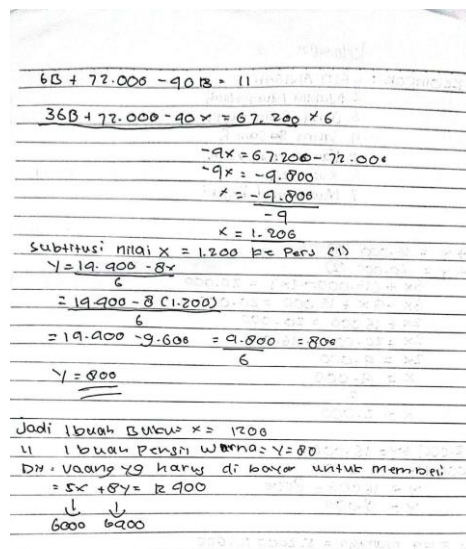 6B + 72.000 - 40B = 11
36B + 72.000 - 40x = 67.200 x 6
-9x = 67.200 - 72.000
-9x = -9.800
x = -9.800
-9
x = 1.200
Subtitusi nilai x = 1.200 ke Pers (1)
Y = 14.400 - 8x
6
= 14.400 - 8 (1.200)
6
= 14.400 - 9.600 = 4.800 = 800
6
Y = 800
Jadi 1 buah Buku = x = 1200
11 1 buah Pensil warna = Y = 80
DH = Uaang yg harus di bayar untuk membeli
= 5x + 8Y = 12 400
↓ ↓
6000 6400